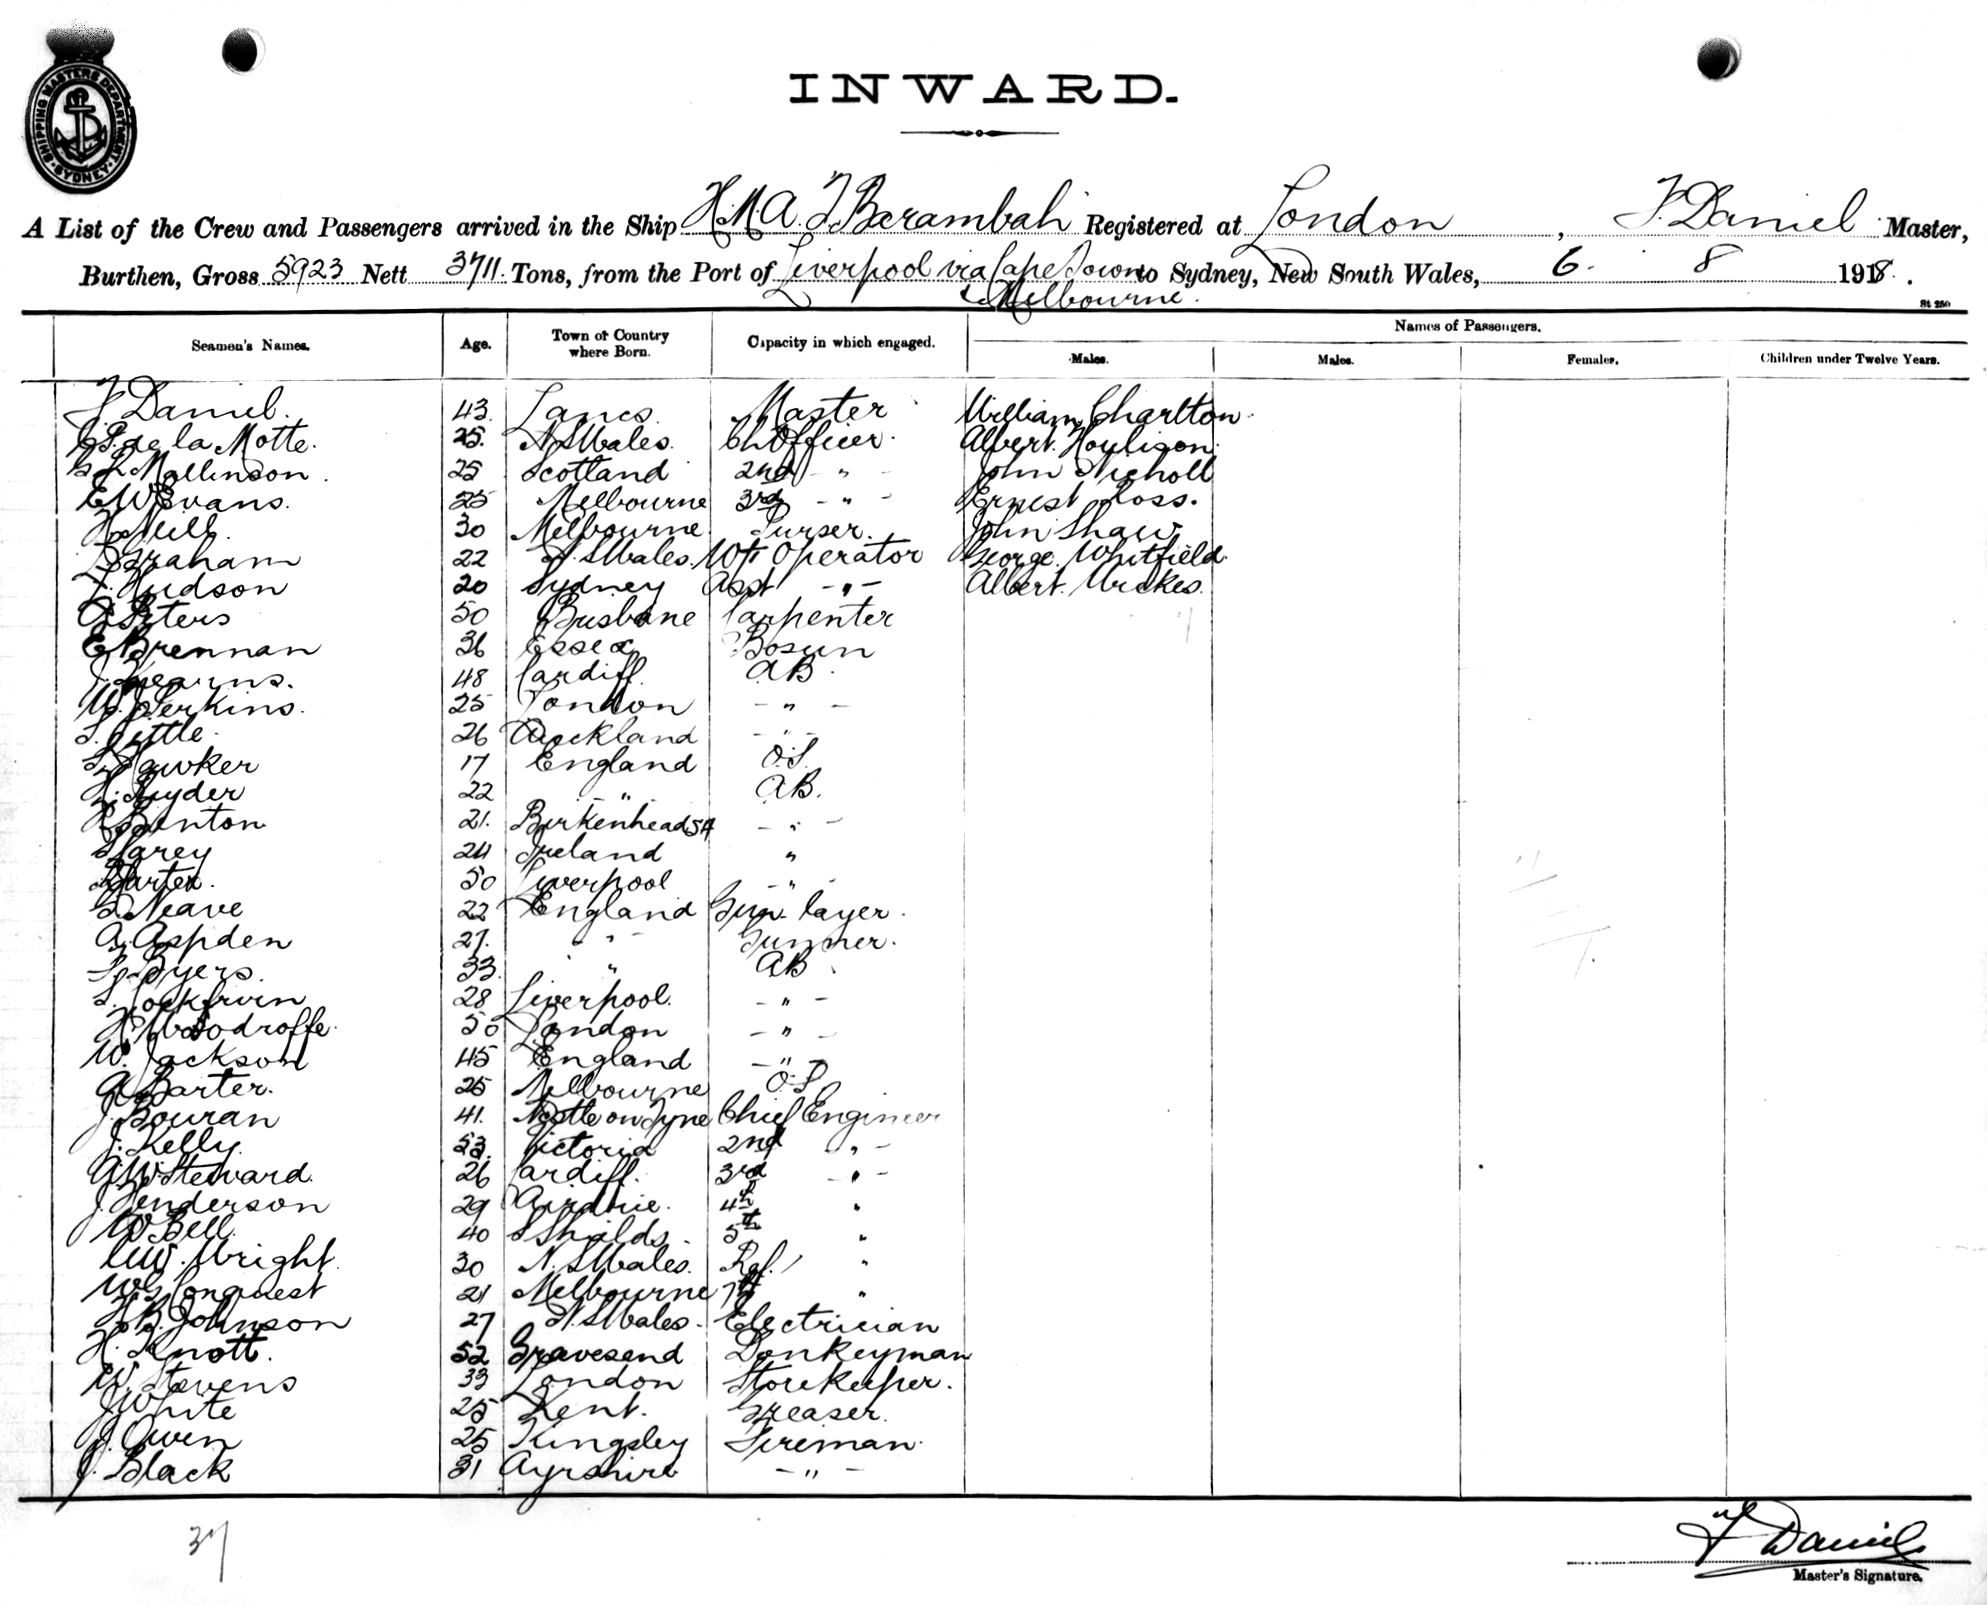 SHIPPING MASTERS DEPARTMENT SYDNEY
INWARD.
A List of the Crew and Passengers arrived in the Ship H.M.A.T. Barambah Registered at London, F. Daniel Master,
Burthen, Gross 5923 Nett 3711. Tons, from the Port of Liverpool via Cape Town to Sydney, New South Wales, 6. 8 1918.
& Melbourne.
St 250
Names of Passengers.
Seamen's Names. Age. Town or Country where Born. Capacity in which engaged. Males. Males. Females. Children under Twelve Years.
F Daniel. 43. Lancs. Master William Charlton
de la Motte. 25. N.S.Wales. Ch Officer. Albert
Mallinson. 25 Scotland 2nd " John Nicholl
E W Evans. 25 Melbourne 3rd - " - Ernest Ross.
30 Melbourne Purser. John Shaw
Graham 22 N.S.Wales. Operator George Whitfield
Hudson 20 Sydney Asst - " - Albert
A Peters 50 Brisbane Carpenter
E Brennan 36 Essex Bosun
J Kearns. 48 Cardiff. A B.
W. Perkins. 25 London - " -
Little. 26 Auckland - " -
Hawker 17 England O.S.
H. Ryder 22 - " - A B.
Benton 21. Birkenhead SA - " -
Carey 24 Ireland "
50 Liverpool - " -
Neave 22 England Gun layer.
A. Aspden 27. - " - Gunner.
Byers. 33. " A B
28 Liverpool. - " -
H. Woodroffe. 50 London - " -
W. Jackson 45 England - " -
A Barter. 25 Melbourne O.S
J Bouran 41. Ncstle on Tyne Chief Engineer
J. Kelly. 53. Victoria 2nd " -
A.W. Steward. 26 Cardiff. 3rd " -
J. Henderson 29 Airdrie. 4th "
W Bell. 40 S Shields. 5th "
Wright. 30 N.S.Wales. Ref. "
W G Conquest 21 Melbourne 7th "
H B Johnson 27 N.S.Wales. Electrician
H. Knott. 52 Gravesend Donkeyman
W Stevens 33 London Storekeeper.
J White 25 Kent. Greaser.
J. Owen 25 Kingsley Fireman.
J. Black 31 Ayrshire - " -
37
F Daniel
Master's Signature.